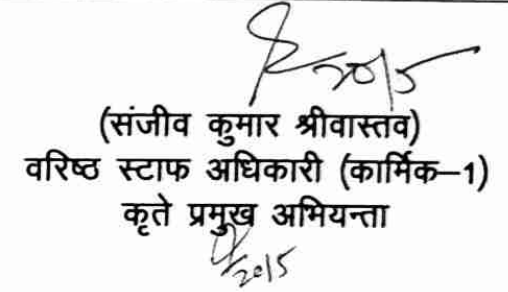 20/5
(संजीव कुमार श्रीवास्तव)
वरिष्ठ स्टाफ अधिकारी (कार्मिक–1)
कृते प्रमुख अभियन्ता